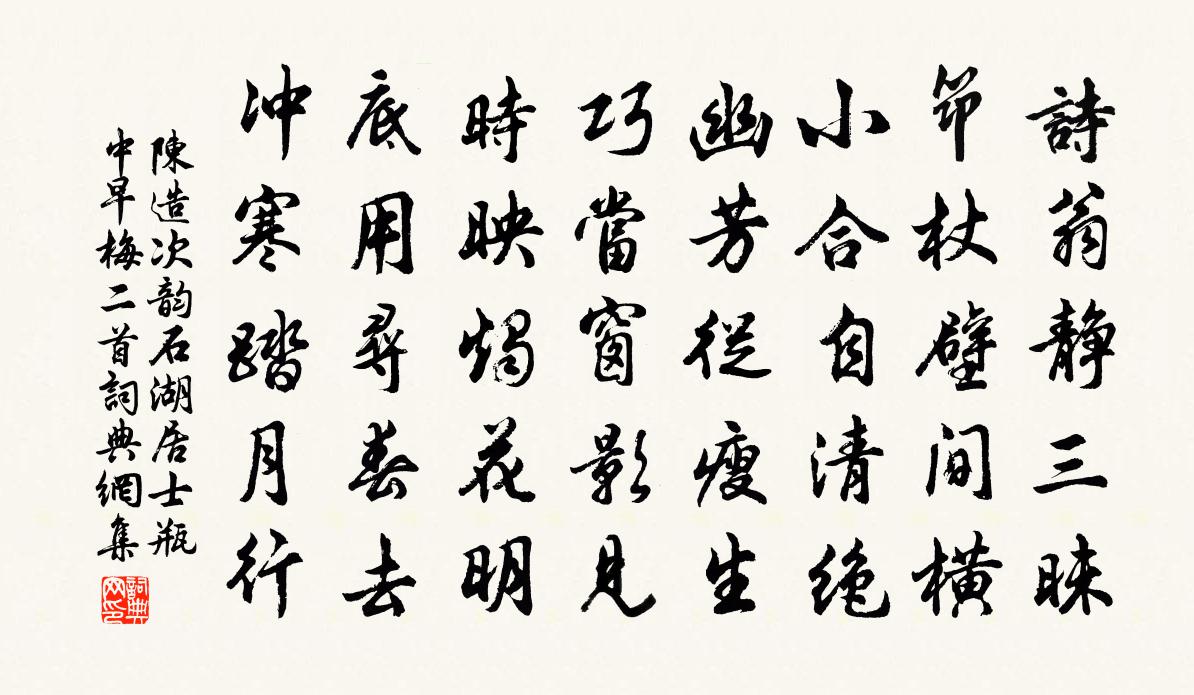 詩翁静三昧
笻杖壁間横
小合自清绝
幽芳從瘦生
巧當窗影見
時映燭花明
底用尋春去
冲寒踏月行
陳造次韵石湖居士瓶
中早梅二首詞典網集
詞典网印